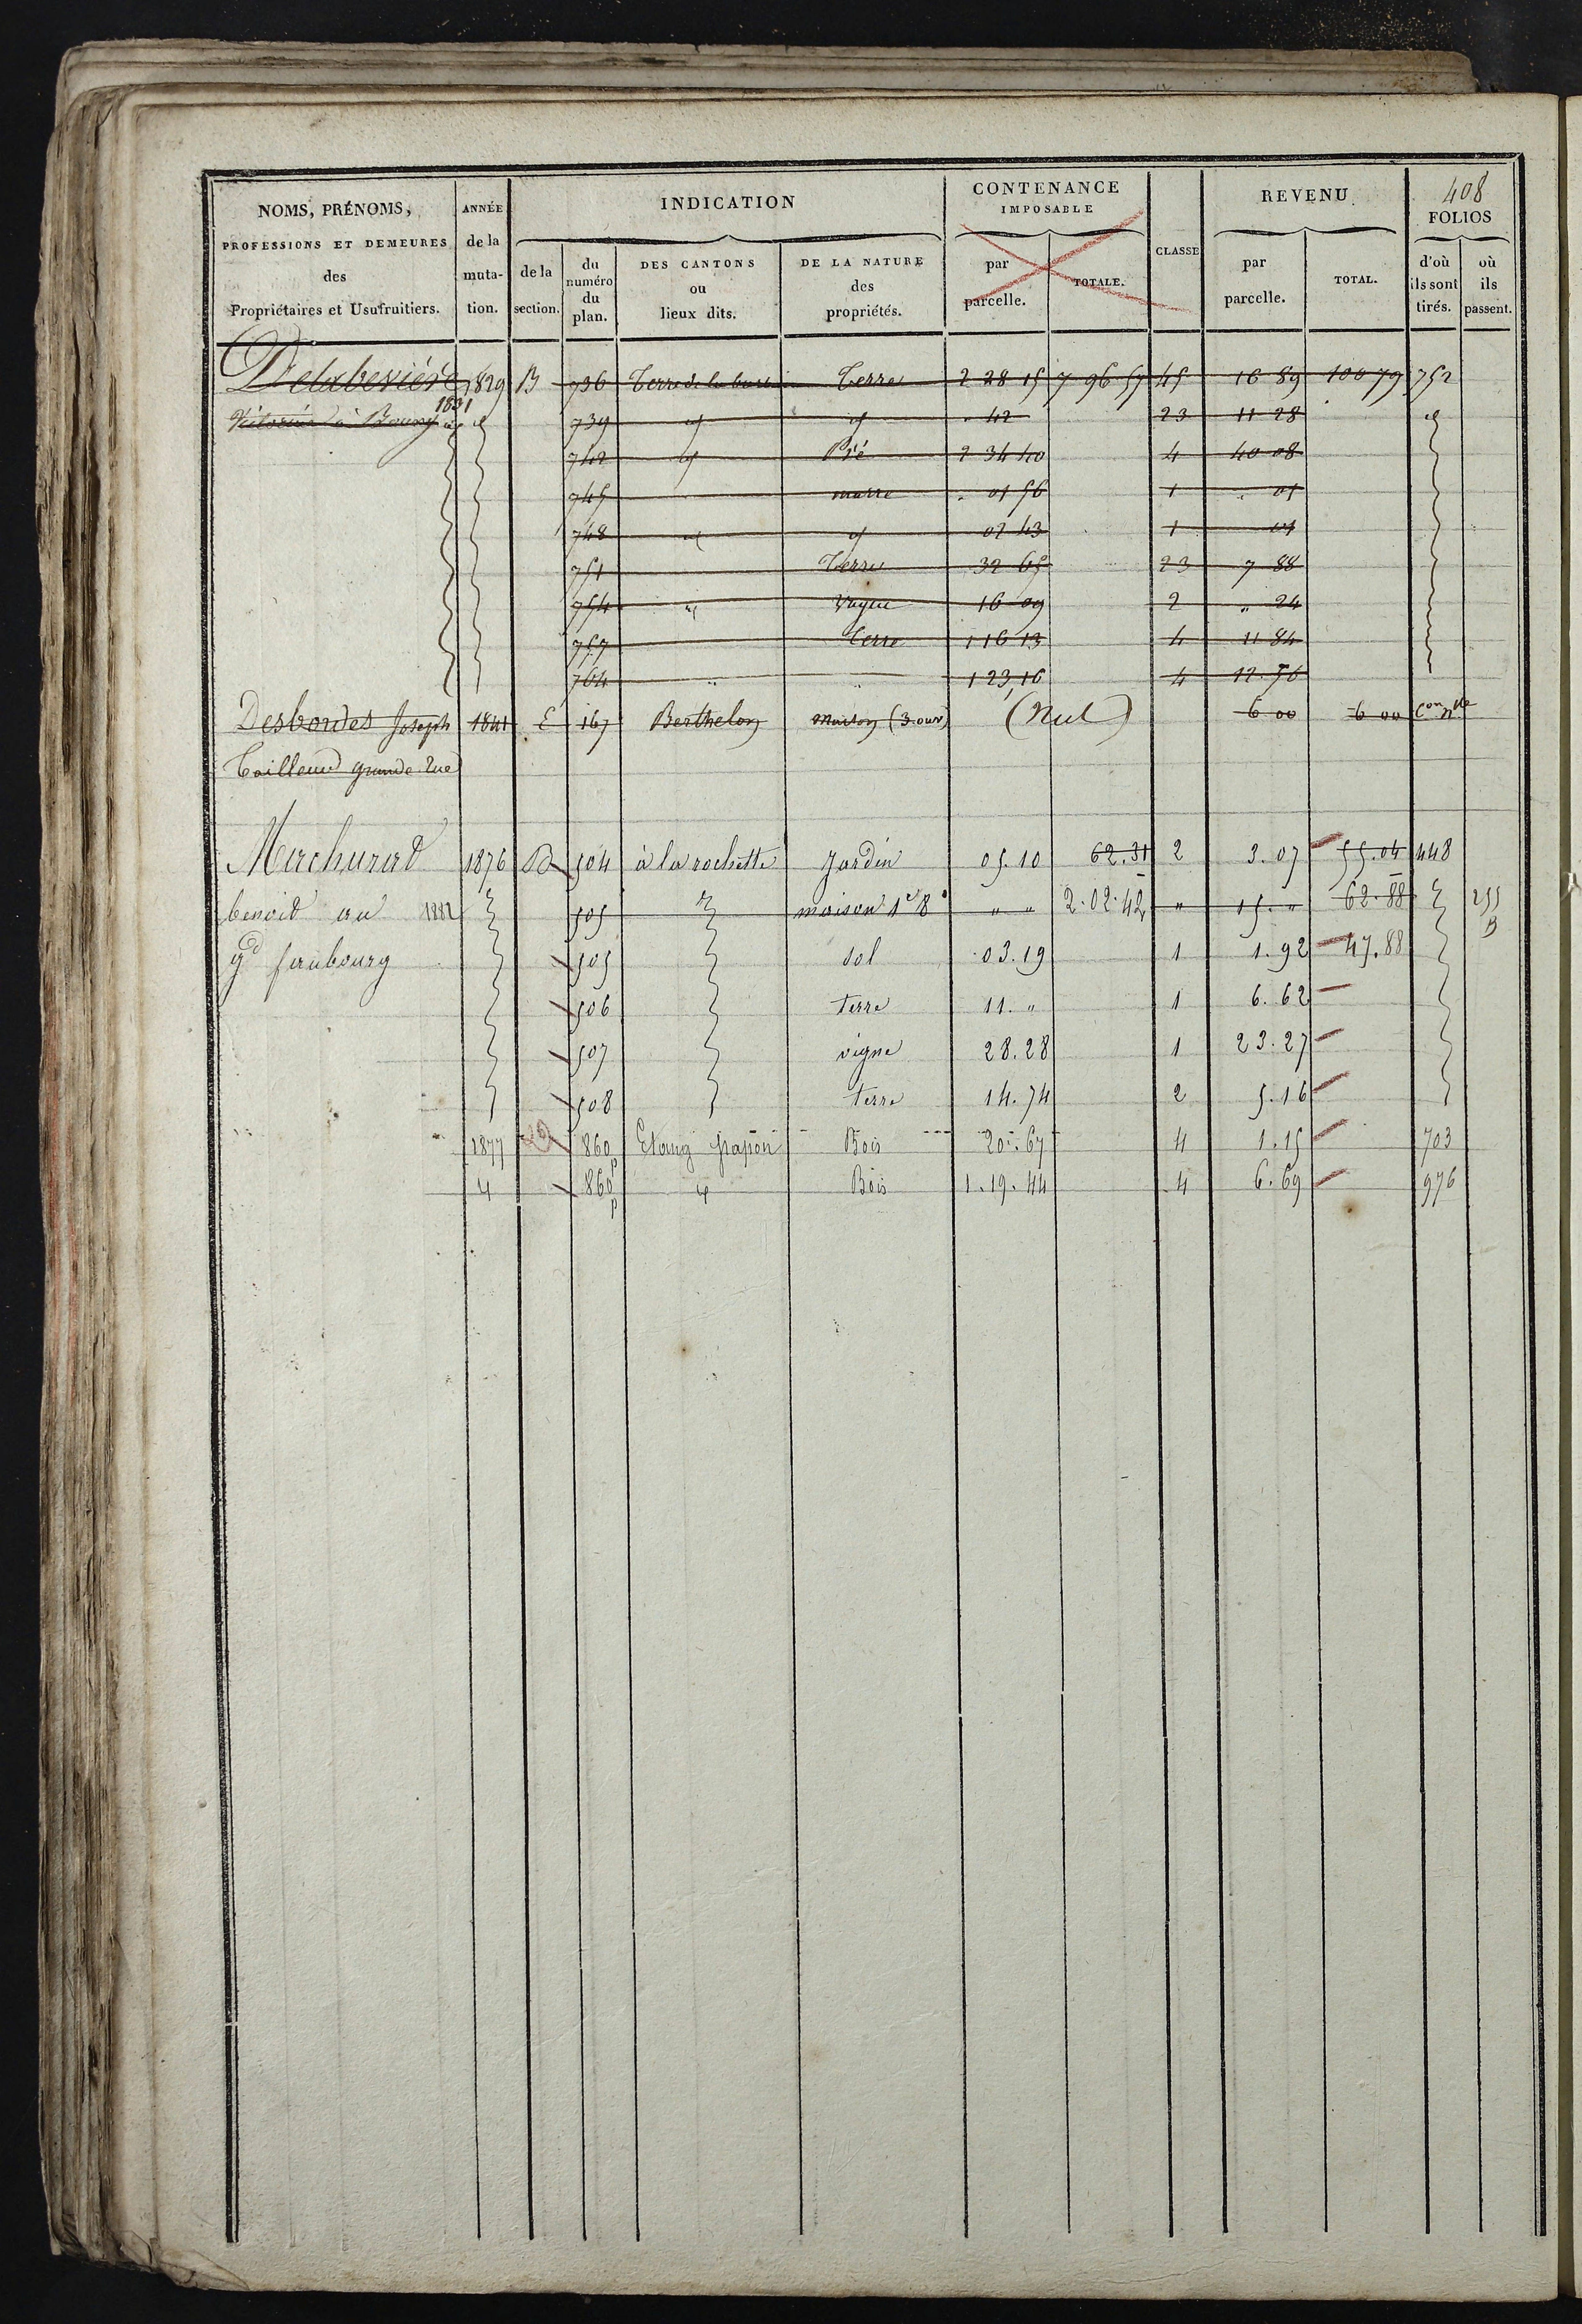 408
NOMS, PRÉNOMS, PROFESSIONS ET DEMEURES des Propriétaires et Usufruitiers. | ANNÉE de la muta-tion. | INDICATION | CONTENANCE IMPOSABLE | CLASSE | REVENU | FOLIOS
de la section. | du numéro du plan. | DES CANTONS ou lieux dits. | DE LA NATURE des propriétés. | par parcelle. | TOTALE. | par parcelle. | TOTAL. | d'où ils sont tirés. | où ils passent.
1829 B 736 Terre de la Terre 2 28 15 7 96 57 45 16 89 100 79 752
à 1831 739 42 23 11 28
742 Pré 2 34 40 4 40 08
745 marre 01 56 1 01
748 02 43 1 01
751 Terre 32 65 23 7 88
754 16 09 2 " 24
757 Terre 1 16 13 4 11 84
764 " " 1 23,16 4 12.56
Desbordes Joseph 1841 E 167 Berthelon maison (3 ouv) (Nul) 6 00 6 00 Con nlle
Tailleur grande Rue
Machurat 1876 B 504 à la rochette Jardin 05.10 62.31 2 3.07 55.04 448
benoit au 1882 505 maison 1er 8e " " 2.02.42 " 15." 62.88 255 B
gd faubourg 505 sol 03.19 1 1.92 47.88
506 terre 11. " 1 6.62
507 vigne 28.28 1 23.27
508 terre 14.74 2 5.16
1877 860p Etang papon Bois 20.67 4 1.15 703
860p Bois 1.19.44 4 6.69 976